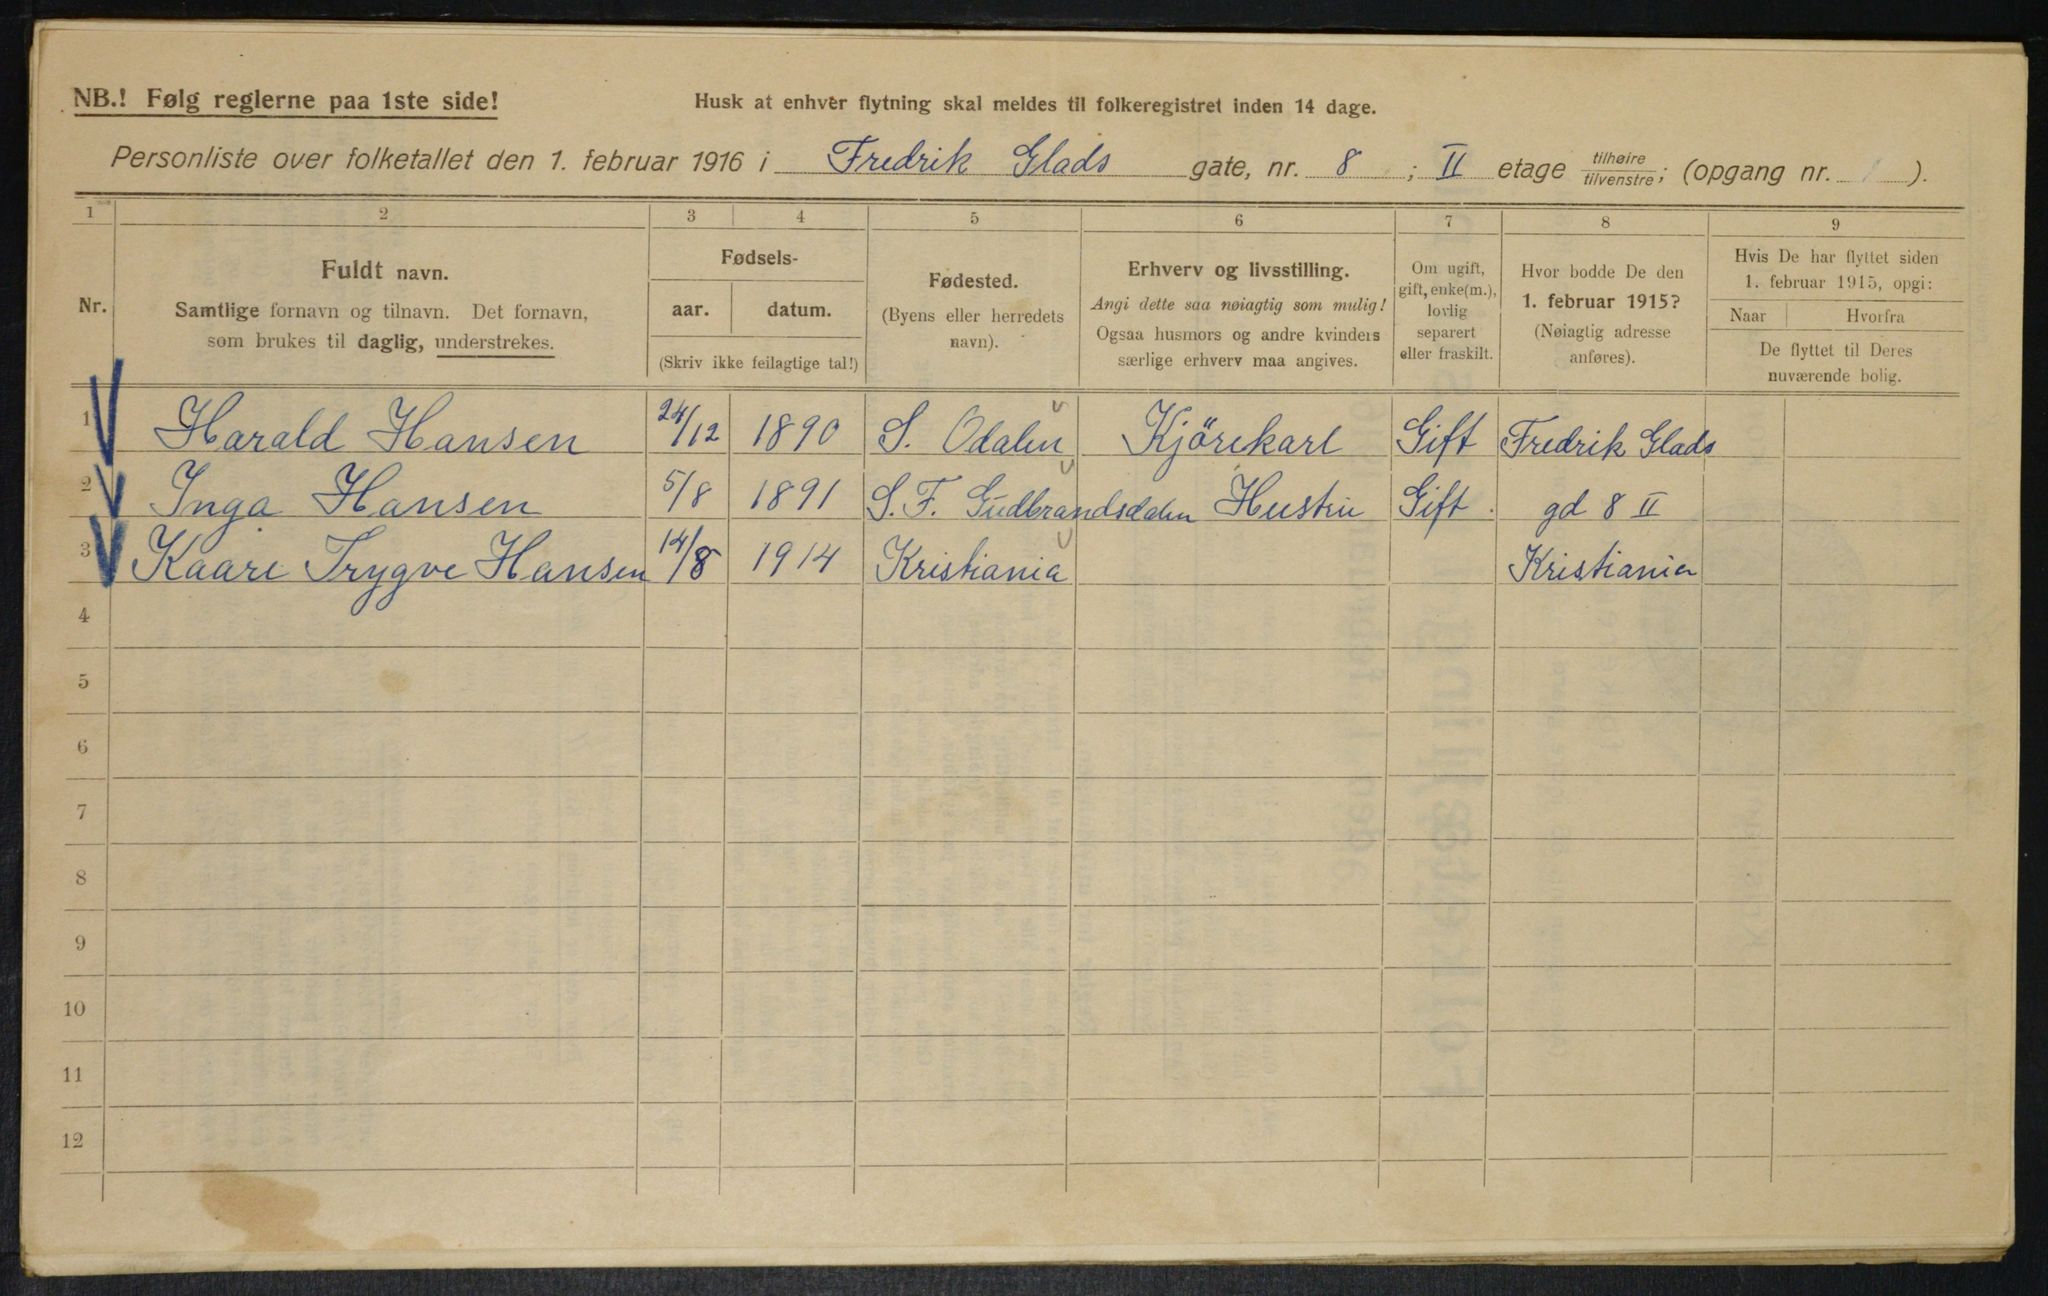 NB.! Følg reglerne paa 1ste side!
Husk at enhver flytning skal meldes til folkeregistret inden 14 dage.
Personliste over folketallet den 1. februar 1916 i Fredrik Glads gate, nr. 8 ; II etage tilhøire/tilvenstre; (opgang nr. ).
1 2 3 4 5 6 7 8 9
Nr.
Fuldt navn.
Samtlige fornavn og tilnavn. Det fornavn,
som brukes til daglig, understrekes.
Fødsels-
aar. datum.
(Skriv ikke feilagtige tal!)
Fødested.
(Byens eller herredets
navn).
Erhverv og livsstilling.
Angi dette saa nøiagtig som mulig!
Ogsaa husmors og andre kvinders
særlige erhverv maa angives.
Om ugift,
gift, enke(m.),
lovlig
separert
eller fraskilt.
Hvor bodde De den
1. februar 1915?
(Nøiagtig adresse
anføres).
Hvis De har flyttet siden
1. februar 1915, opgi:
Naar Hvorfra
De flyttet til Deres
nuværende bolig.
1 Harald Hansen 24/12 1890 S. Odalen Kjörekarl Gift Fredrik Glads
2 Inga Hansen 5/8 1891 S. F. Gudbrandsdalen Hustru Gift. gd 8 II
3 Kaare Trygve Hansen 14/8 1914 Kristiania Kristiania
4
5
6
7
8
9
10
11
12